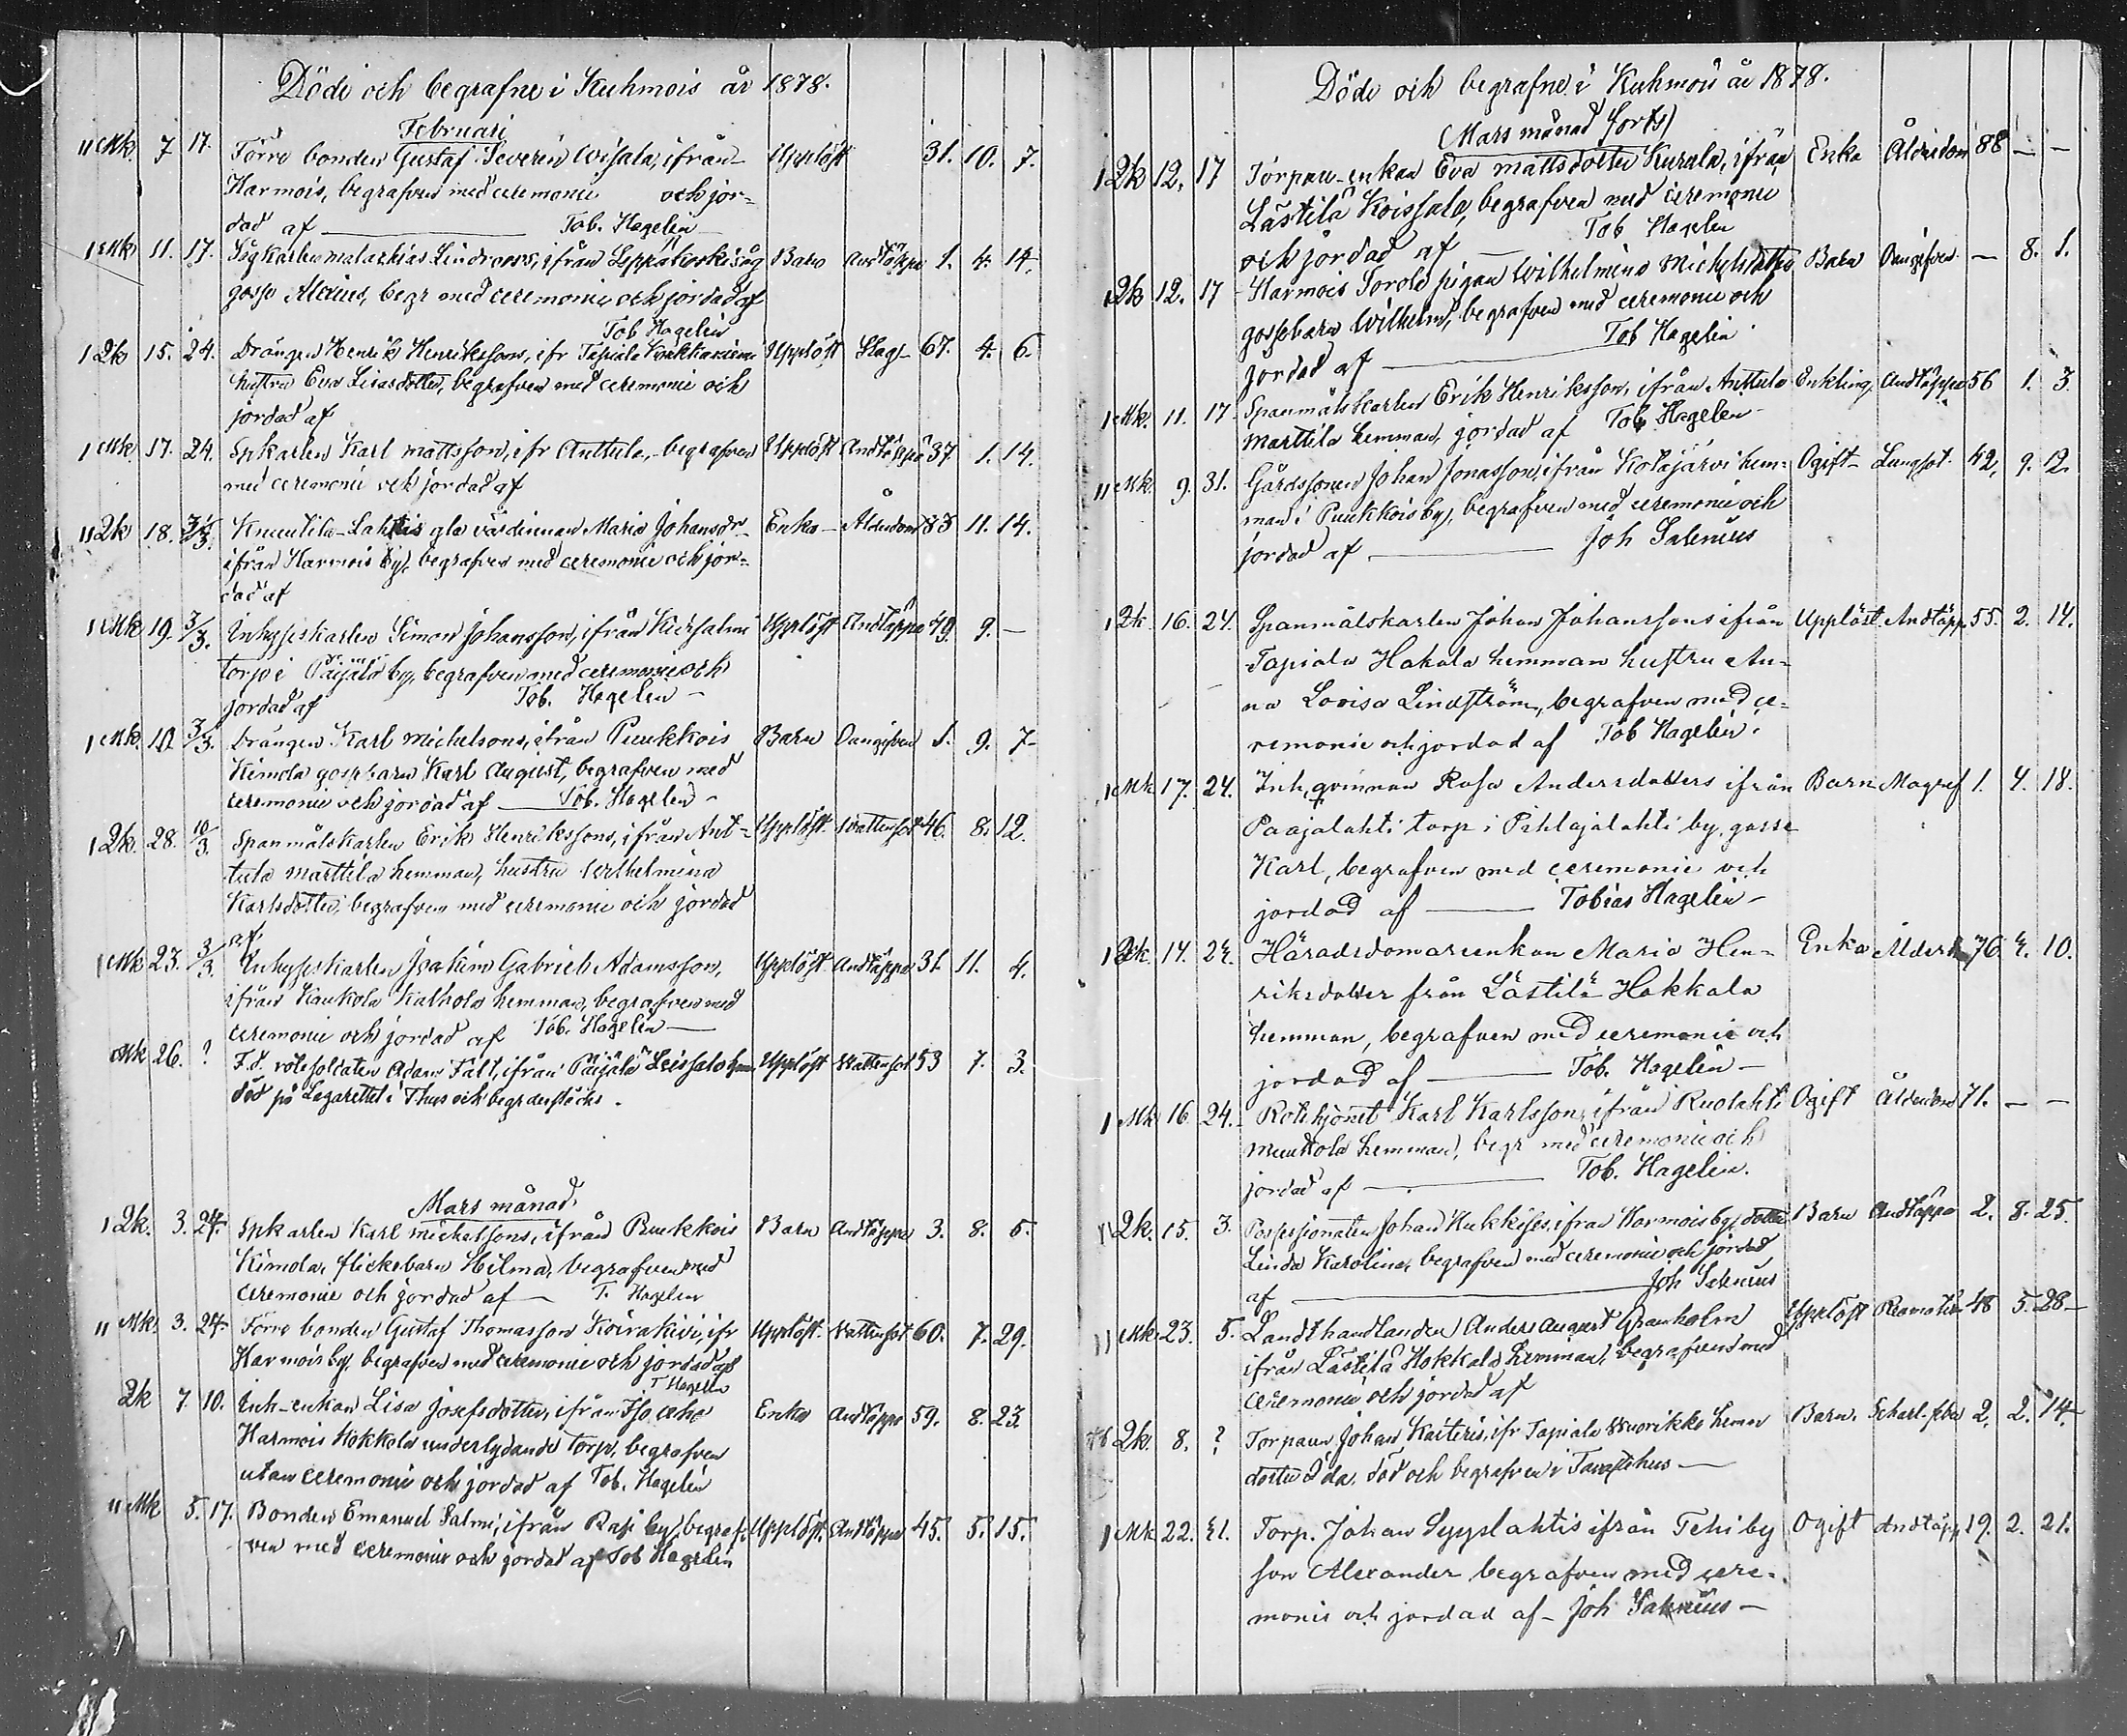 Döde och begrafne i Kuhmois år 1878.
Februari
II Mk. 7 17. Förre bonden Gustaf Severin Wisala, ifrån Upplöst 31. 10. 7.
Harmois, begrafven med ceremonie och jor-
dad af — Tob. Hagelin
I Mk 11. 17. Sågkarlen Malakias Lindroos, ifrån Leppäkoski såg Barn Andtäppa 1. 4. 14.
gosse begr med ceremonie och jordad af
Tob Hagelin
I Qk 15. 24. Drängen Henrik Henriksson, ifr Tapiala Upplöst Slag 67. 4. 6.
hustru Eva dotter, begrafven med ceremonie och
jordad af
I Mk. 17. 24. Spkarlen Karl Mattsson, ifr Anttula, begrafven Upplöst Andtäppa 37 1. 14.
med ceremonie och jordad af
II Qk 18. 3/3. Knuutila-Lahtis gla värdinnan Maria Johansdr Enka Ålderdom 83 11. 14.
ifrån Harmois by, begrafven med ceremonie och jor-
dad af
I Mk 19. 3/3. Inhyseskarlen Simon Johansson, ifrån Upplöst Andtäppa 49. 9. —
torp i Päijälä by, begrafven med ceremonie och
jordad af Tob. Hagelin —
I Mk. 19 3/3. Drängen Karl Michelsons, ifrån Puukkois Barn Oangifven 1. 9. 7
Kimola gossebarn Karl August, begrafven med
ceremonie och jordad af — Tob. Hagelin —
I Qk. 28. 10/3. Spanmålskarlen Erik Henrikssons, ifrån Ant- Upplöst Vattensot 46. 8. 12.
tula Marttila hemman, hustru Wilhelmina
Karlsdotter, begrafven med ceremonie och jordad
af
I Mk 23. 3/3. Inhyseskarlen Joakim Gabriel Adamsson, Upplöst Andtäppa 31. 11. 4.
ifrån Kaukola hemman, begrafven med
ceremonie och jordad af Tob. Hagelin —
Mk 26. ? F.d. rotesoldaten Adam Fält, ifrån Päijälä Upplöst Vattensot 53 7. 3.
död på Lazarettet i Thus och begr derstädes.
Mars månad
I Qk. 3. 24. Spkarlen Karl Michelssons, ifrån Puukkois Barn Andtäppa 3. 8. 5.
Kimola, flickebarn Hilma, begrafven med
ceremonie och jordad af — T. Hagelin
II Mk. 3. 24. Förre bonden Gustaf Thomasson Koirakivi, ifr Upplöst. Vattensot 60. 7. 29.
Harmois by, begrafven med ceremonie och jordad af
T Hagelin
Qk 7. 10. Inh-enkan Lisa Josefsdotter, ifrån Iso aho Enka Andtäppa 59. 8. 23.
Harmois Hokkola underlydande torp, begrafven
utan ceremonie och jordad af Tob. Hagelin
II Mk 5. 17. Bonden Emanuel Salmi, ifrån by, begraf- Upplöst. Andtäppa 45. 5. 15.
ven med ceremonie och jordad af Tob Hagelin
Döde och begrafne i Kuhmois år 1878.
(Mars månad forts)
I Qk 12. 17 Torpare-enkan Eva Mattsdotter Kurala, ifrån Enka Ålderdom 88 — —
Lästilä Koissala, begrafven med ceremonie
och jordad af — Tob Hagelin
I Qk 12. 17 Harmois Sorola pigan Wilhelmina Michelsdotters Barn Oangifven — 8. 1.
gossebarn Wilhelm, begrafven med ceremonie och
jordad af — Tob Hagelin
I Mk. 11. 17. Spanmålskarlen Erik Henriksson, ifrån Anttula Enkling Andtäppa 56 1. 3
Marttila hemman, jordad af Tob. Hagelin
II Mk. 9. 31. Gårdssonen Johan Jonasson, ifrån Kotajärvi hem- Ogift Lungsot 42. 9. 12
man i Puukkois by, begrafven med ceremonie och
jordad af — Joh Salenius
I Qk. 16. 24. Spanmålskarlen Johan Johanssons ifrån Upplöst. Andtäpp 55. 2. 14.
Tapiala Hakala hemman hustru An-
na Lovisa Lindström, begrafven med ce-
remonie och jordad af Tob Hagelin
I Mk 17. 24. Inh.qvinnan Rosa Andersdotters ifrån Barn Magref 1. 4. 18.
Paajalahti torp i Pihlajalahti by, gosse
Karl, begrafven med ceremonie och
jordad af — Tobias Hagelin —
I Qk. 14. 24. Häradsdomareenkan Maria Hen- Enka Ålderd 76. 4. 10.
riksdotter från Lästilä Hakkala
hemman, begrafven med ceremonie och
jordad af — Tob. Hagelin —
I Mk 16 24. Rotehjonet Karl Karlsson, ifrån Ruolahti Ogift Ålderdom 71. — —
hemman, begr med ceremonie och
jordad af — Tob. Hagelin.
II Qk. 15. 3. Possessionaten Johan Kukkises, ifrån Harmois by, dotter Barn Andtäppa 2. 8. 25.
Linda Karolina, begrafven med ceremonie och jordad
af — Joh Salenius
II Mk 23. 5. Landthandlanden Anders August Granholm Upplöst 48 5. 28 —
ifrån Lästilä Hokkala hemman, begrafven med
ceremonie och jordad af
Qk. 8. ? Torparen Johan ifr Tapiala Vuorikko hemm Barn. Scharl. feber 2. 2. 14.
dotter Ida, död och begrafven i Tavastehus —
I Mk 22. 21. Torp. Johan Syyslahtis ifrån Tehi by Ogift Andtäpp 19. 2. 21.
son Alexander begrafven med cere-
monie och jordad af — Joh Salenius —